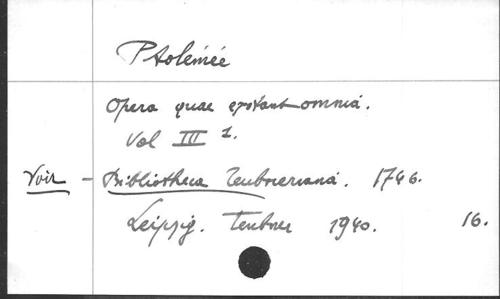 Ptolémée
Opera quae exstant omnia.
Vol III 1.
Voir - Bibliotheca Teubneriana. 1746.
Leipzig. Teubner 1940. 16.